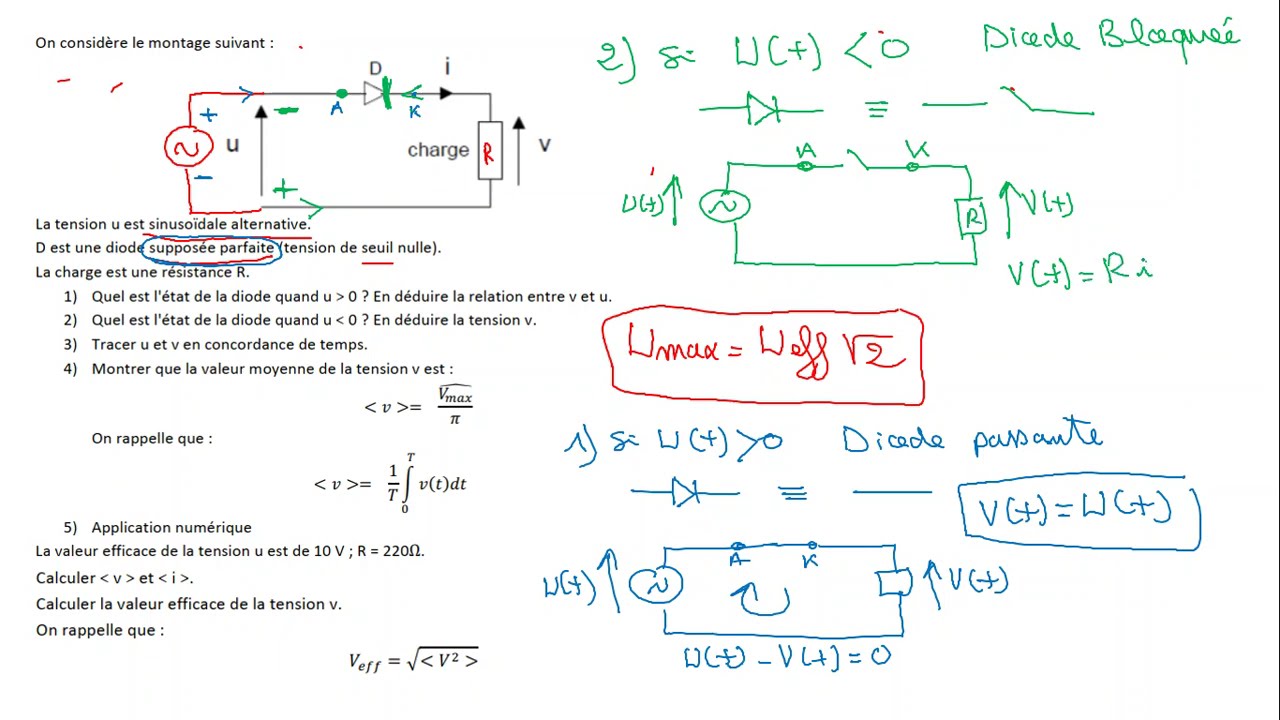 On considère le montage suivant :
D
i
A
K
+
-
u
-
+
charge
R
v
La tension u est sinusoïdale alternative.
D est une diode supposée parfaite (tension de seuil nulle).
La charge est une résistance R.
1) Quel est l'état de la diode quand u > 0 ? En déduire la relation entre v et u.
2) Quel est l'état de la diode quand u < 0 ? En déduire la tension v.
3) Tracer u et v en concordance de temps.
4) Montrer que la valeur moyenne de la tension v est :
< v >= V̂max/π
On rappelle que :
< v >= 1/T ∫₀ᵀ v(t)dt
5) Application numérique
La valeur efficace de la tension u est de 10 V ; R = 220Ω.
Calculer < v > et < i >.
Calculer la valeur efficace de la tension v.
On rappelle que :
Veff = √< V² >
2) si U(t) < 0 Diode Bloquée
≡
A
K
U(t)
R
V(t)
V(t) = R i
Umax = Ueff √2
1) si U(t) > 0 Diode passante
≡
V(t) = U(t)
A
K
U(t)
V(t)
U(t) - V(t) = 0